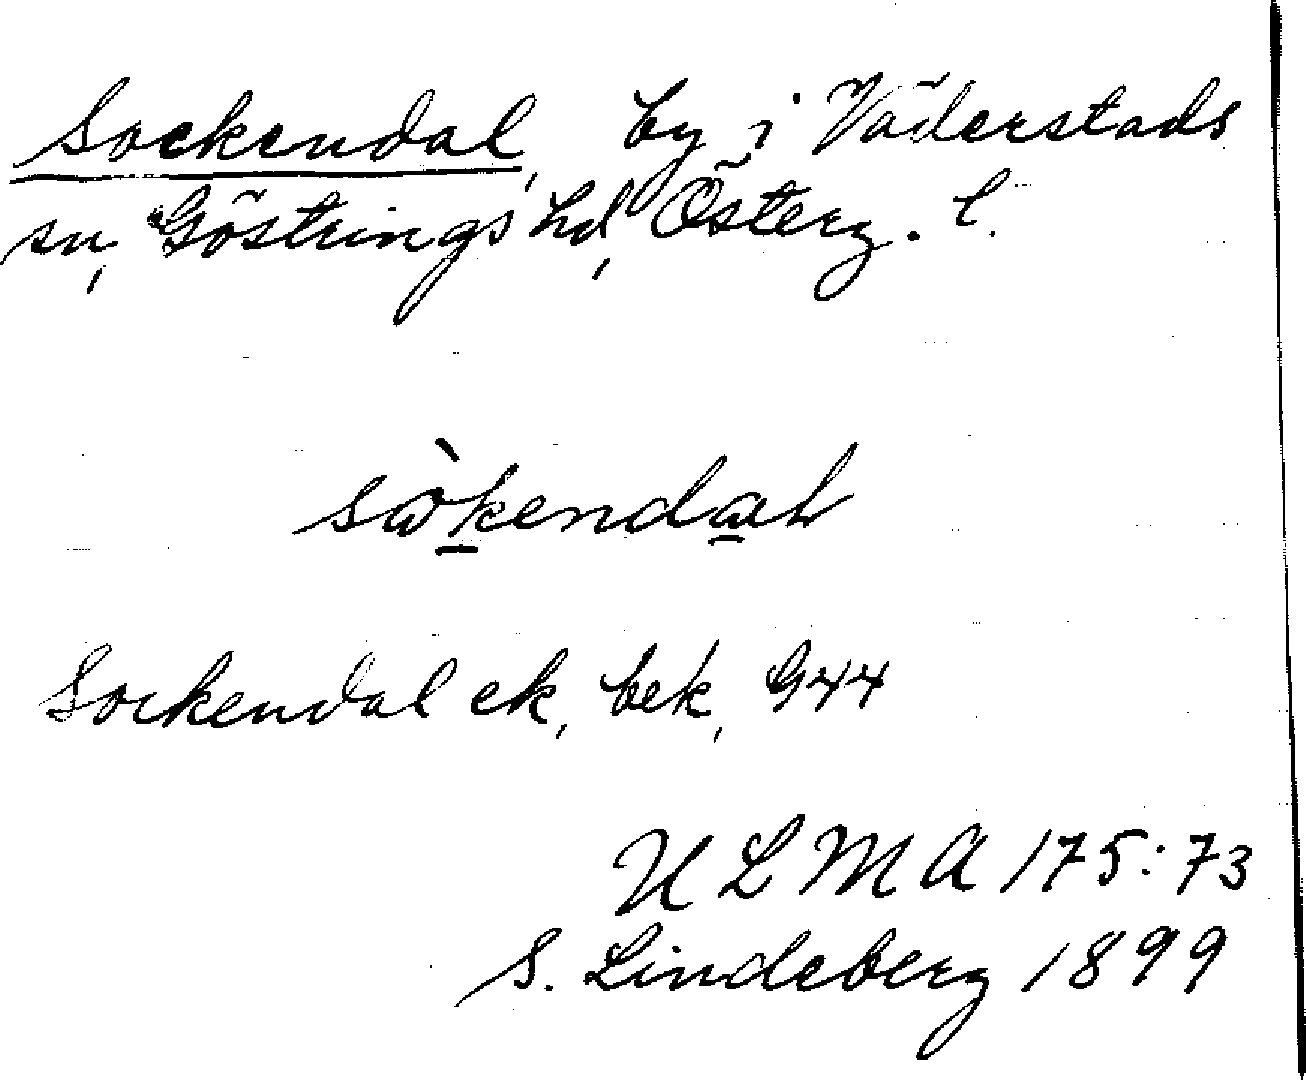 Sockendal, by i Väderstads
sn, Göstrings hd, Österg. l.
sòkendal
Sockendal ek, bek, 944
U L M A 175:73
S. Lindeberg 1899